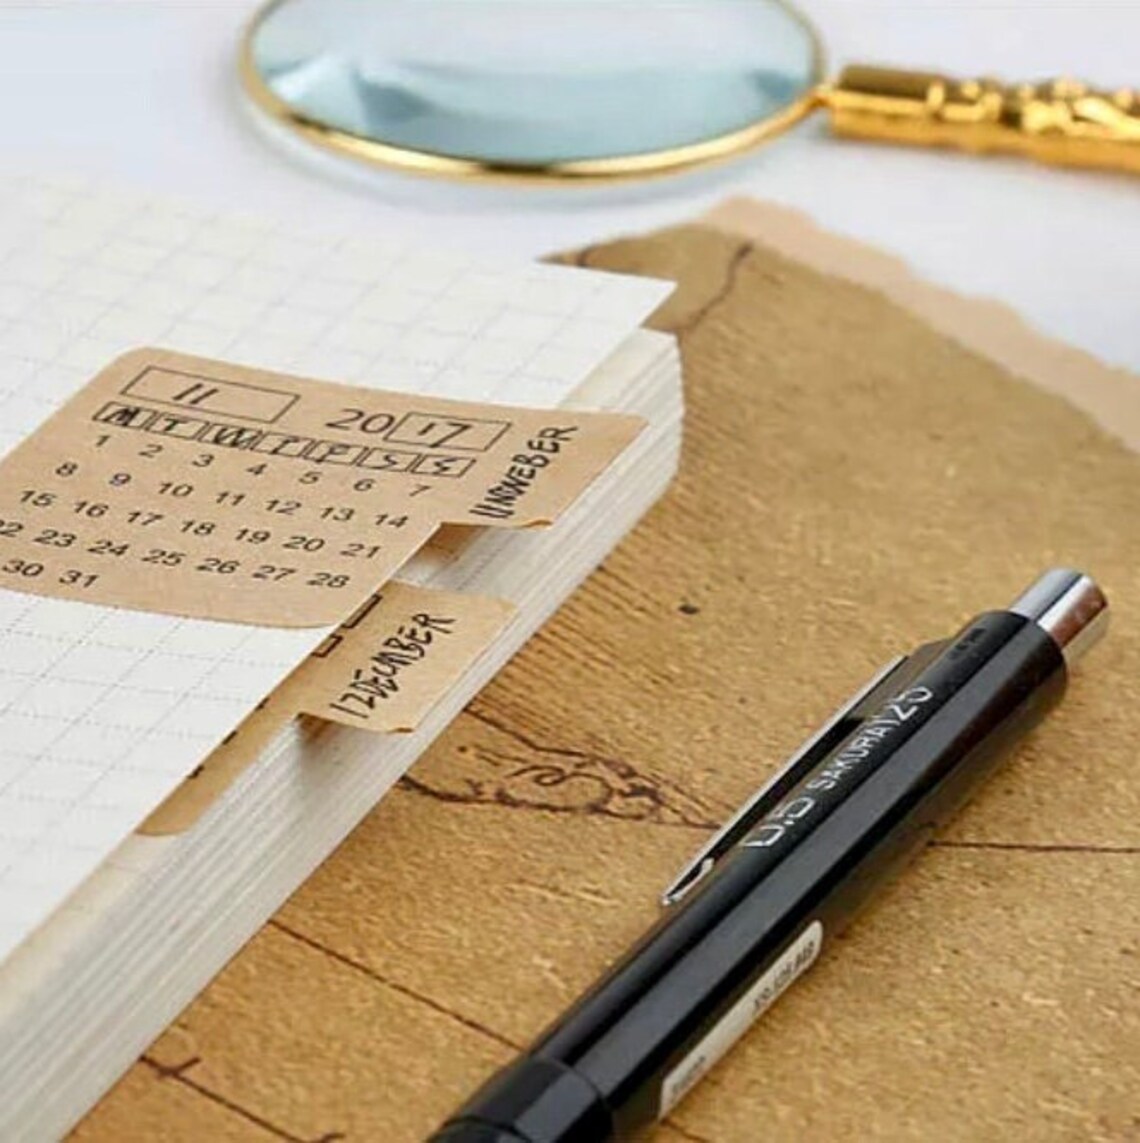 11
20 17
M T W T F S S
1 2 3 4 5 6 7
8 9 10 11 12 13 14
15 16 17 18 19 20 21
22 23 24 25 26 27 28
30 31
11NOVEBER
12DECNBER
0.5 SAKURA 125